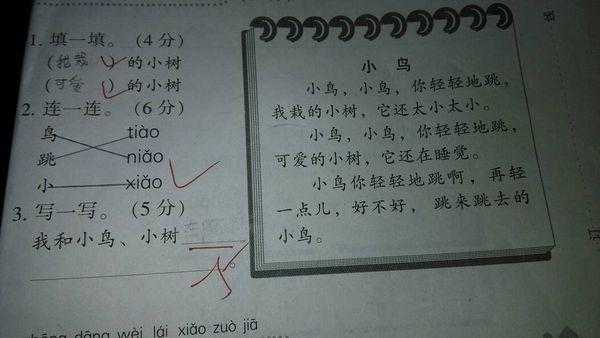 1. 填一填。(4分)
(我栽)的小树
(可爱)的小树
2. 连一连。(6分)
鸟 tiào
跳 niǎo
小 xiǎo
3. 写一写。(5分)
我和小鸟、小树
小鸟
小鸟,小鸟,你轻轻地跳,
我栽的小树,它还太小太小。
小鸟,小鸟,你轻轻地跳,
可爱的小树,它还在睡觉。
小鸟你轻轻地跳啊,再轻
一点儿,好不好,跳来跳去的
小鸟。
dāng wèi lái xiǎo zuò jiā